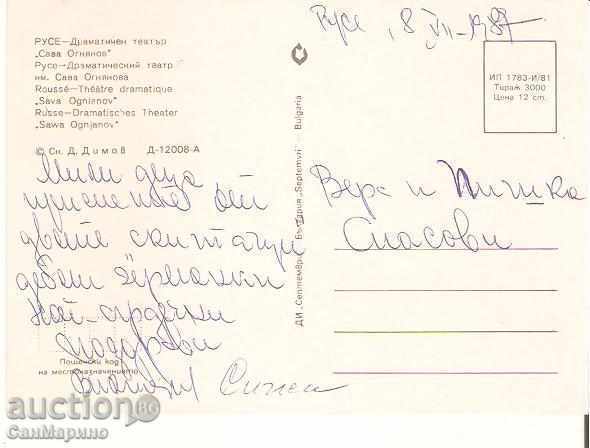 РУСЕ—Драматичен театър
„Сава Огнянов"
Русе—Драматический театр
им. Сава Огнянова
Roussé—Théâtre dramatique
„Sava Ognianov"
Russe—Dramatisches Theater
„Sawa Ognjanov"
© Сн. Д. Димов Д-12008-А
Русе, 8 VII-1987
ИП 1783-И/81
Тираж 3000
Цена 12 ст.
ДИ „Септември" — България „Septemvri" — Bulgaria
Мили деца
приемете от
двете скитащи
най-сърдечни
поздрави
Вера и
Спасови
Пощенски код
на местоназначението
auction BG
СанМарино